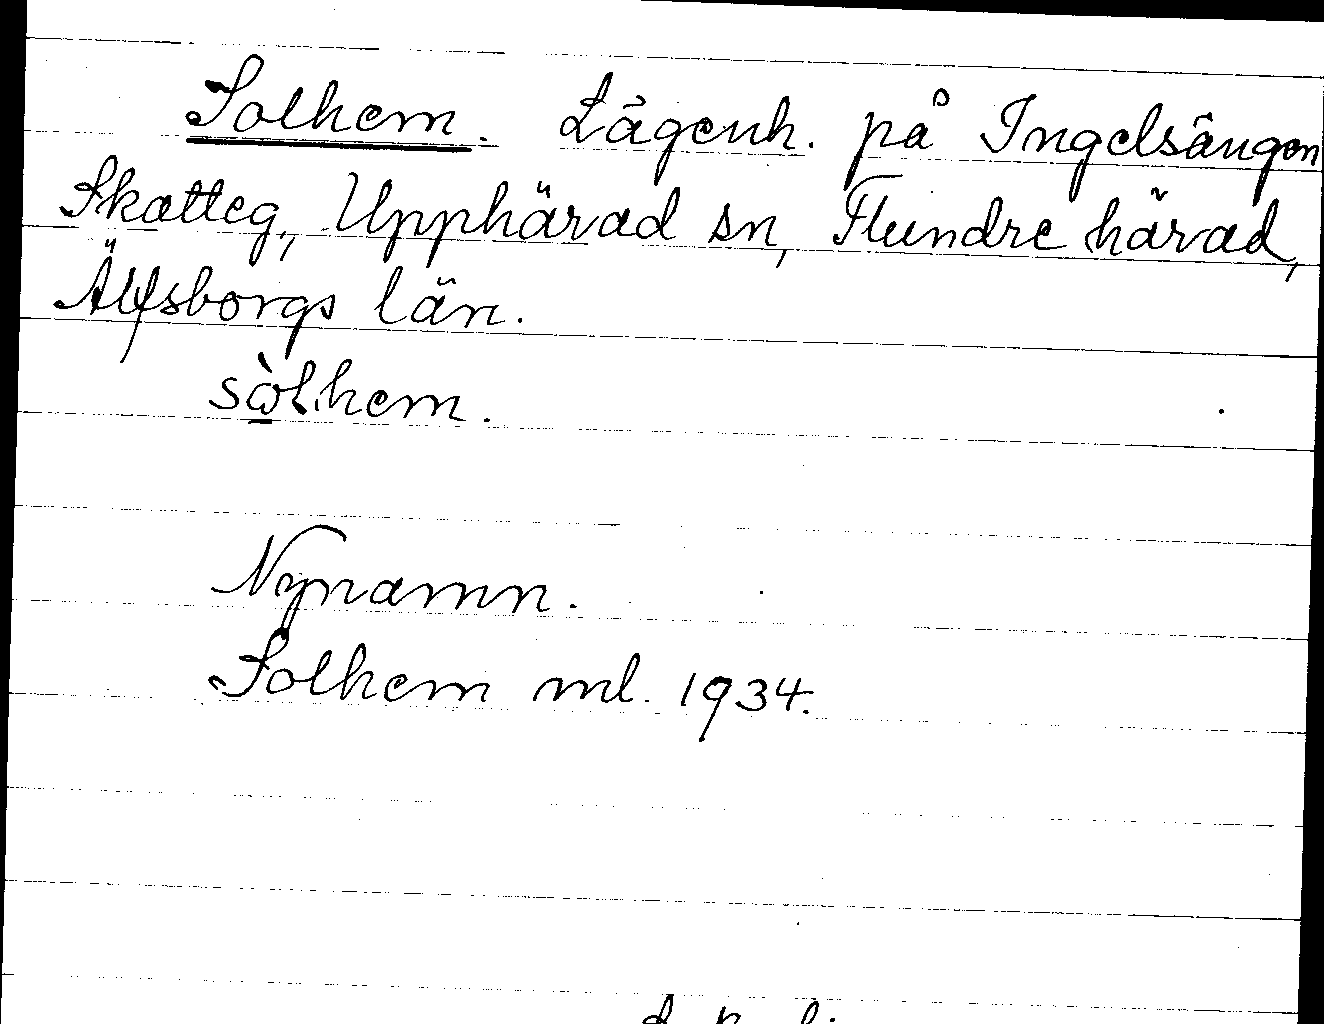 Solhem. Lägenh. på Ingelsängen
Skatteg., Upphärad sn, Flundre härad,
Älfsborgs län.
Nynamn.
Solhem ml. 1934.